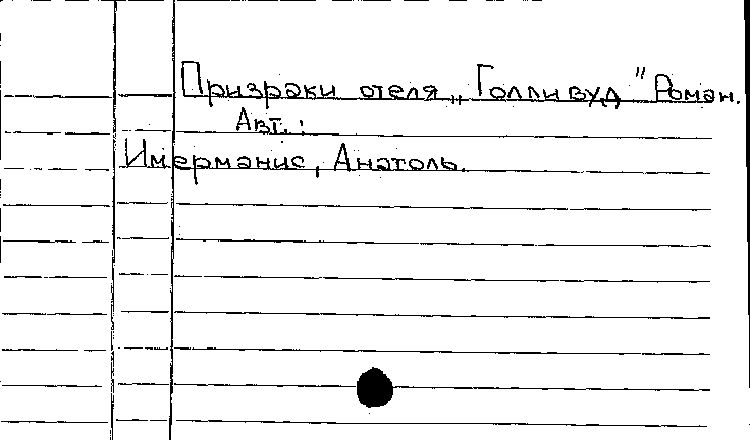 Призраки отеля „Голливуд" Роман.
Авт.:
Имерманис, Анатоль.